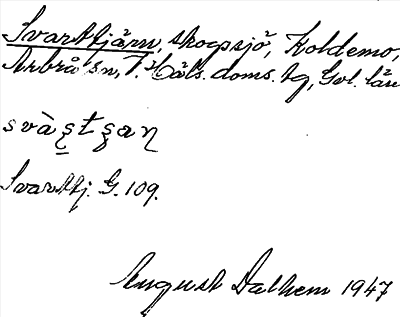 Svarttjärn, skogssjö, Koldemo,
Arbrå sn, V. Häls. doms. tg, Gvl. län
Svarttj. G. 109.
August Dalhem 1947